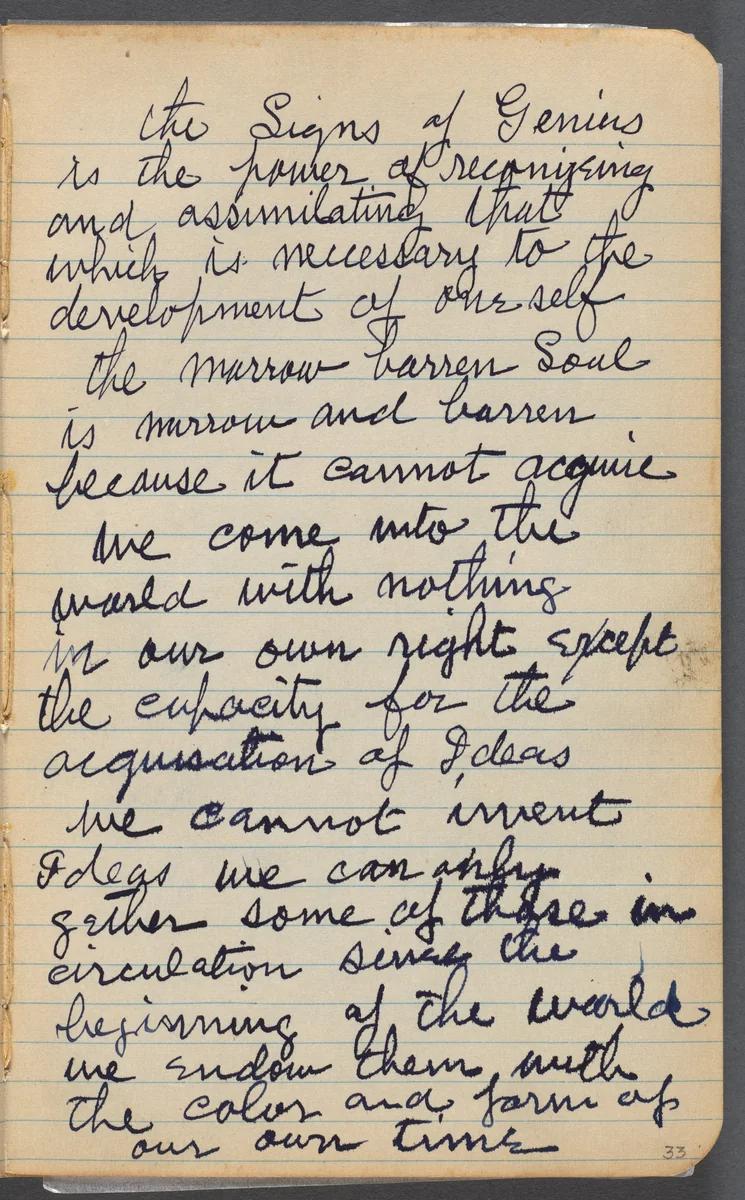 the Signs of Genius
is the power of reconizeing
and assimilating that
which is necessary to the
development of oneself
the narrow barren Soul
is narrow and barren
because it cannot acquire
We come into the
world with nothing
in our own right except
the capacity for the
acquisation of Ideas
We cannot invent
Ideas we can only
gether some of those in
circulation since the
beginning of the world
we endow them with
the color and form of
our own time
33